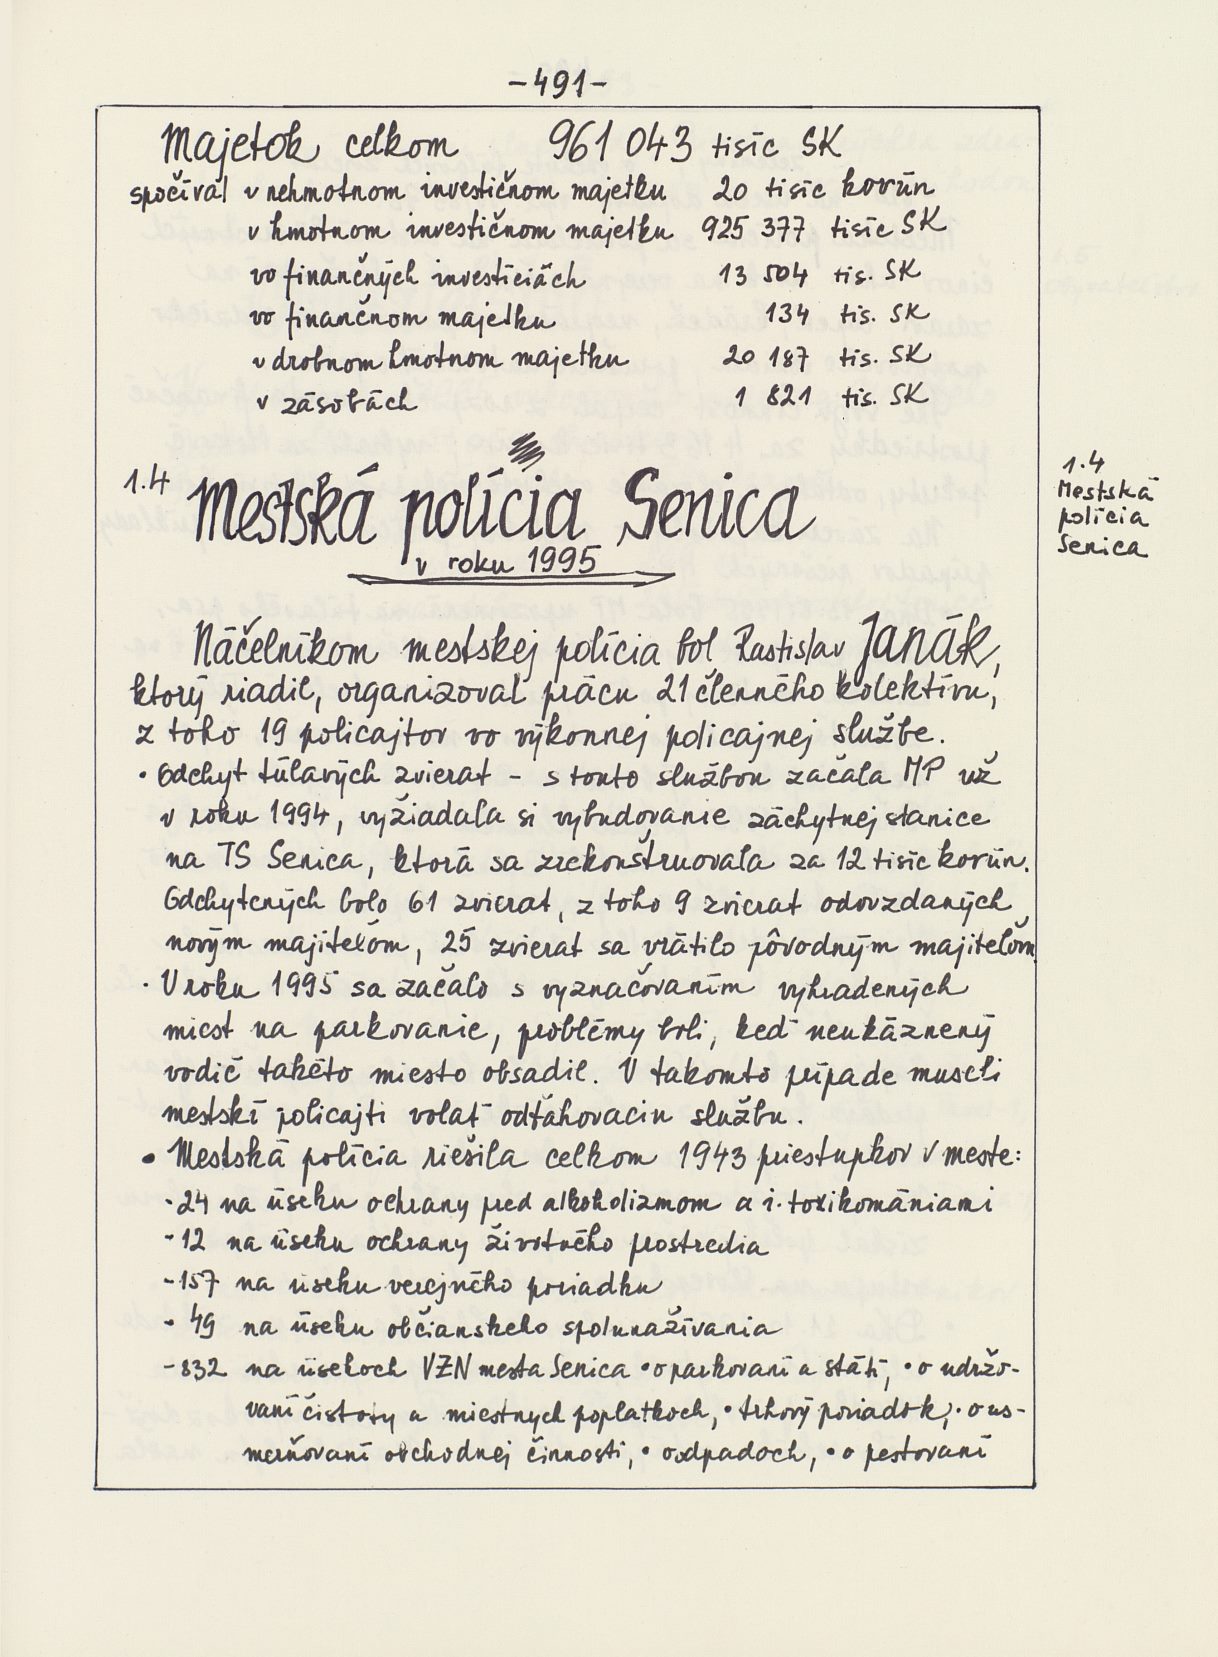 -491-
Majetok celkom 961 043 tisíc SK
spočíval v nehmotnom investičnom majetku 20 tisíc korún
v hmotnom investičnom majetku 925 377 tisíc SK
vo finančných investíciách 13 504 tis. SK
vo finančnom majetku 134 tis. SK
v drobnom hmotnom majetku 20 187 tis. SK
v zásobách 1 821 tis. SK
1.4 Mestská polícia Senica
v roku 1995
1.4
Mestská
polícia
Senica
Náčelníkom mestskej polícia bol Rastislav Janák,
ktorý riadil, organizoval prácu 21 členného kolektívu,
z toho 19 policajtov vo výkonnej policajnej službe.
• Odchyt túlavých zvierat - s touto službou začala MP už
v roku 1994, vyžiadala si vybudovanie záchytnej stanice
na TS Senica, ktorá sa zrekonštruovala za 12 tisíc korún.
Odchytených bolo 61 zvierat, z toho 9 zvierat odovzdaných
novým majiteľom, 25 zvierat sa vrátilo pôvodným majiteľom
• V roku 1995 sa začalo s vyznačovaním vyhradených
miest na parkovanie, problémy boli, keď neukáznený
vodič takéto miesto obsadil. V takomto prípade museli
mestskí policajti volať odťahovaciu službu.
• Mestská polícia riešila celkom 1943 priestupkov v meste:
- 24 na úseku ochrany pred alkoholizmom a i. toxikomániami
- 12 na úseku ochrany životného prostredia
- 157 na úseku verejného poriadku
- 49 na úseku občianskeho spolunažívania
- 832 na úsekoch VZN mesta Senica • o parkovaní a státí, • o udržo-
vaní čistoty a miestnych poplatkoch, • trhový poriadok, • o us-
merňovaní obchodnej činnosti, • o odpadoch, • o pestovaní